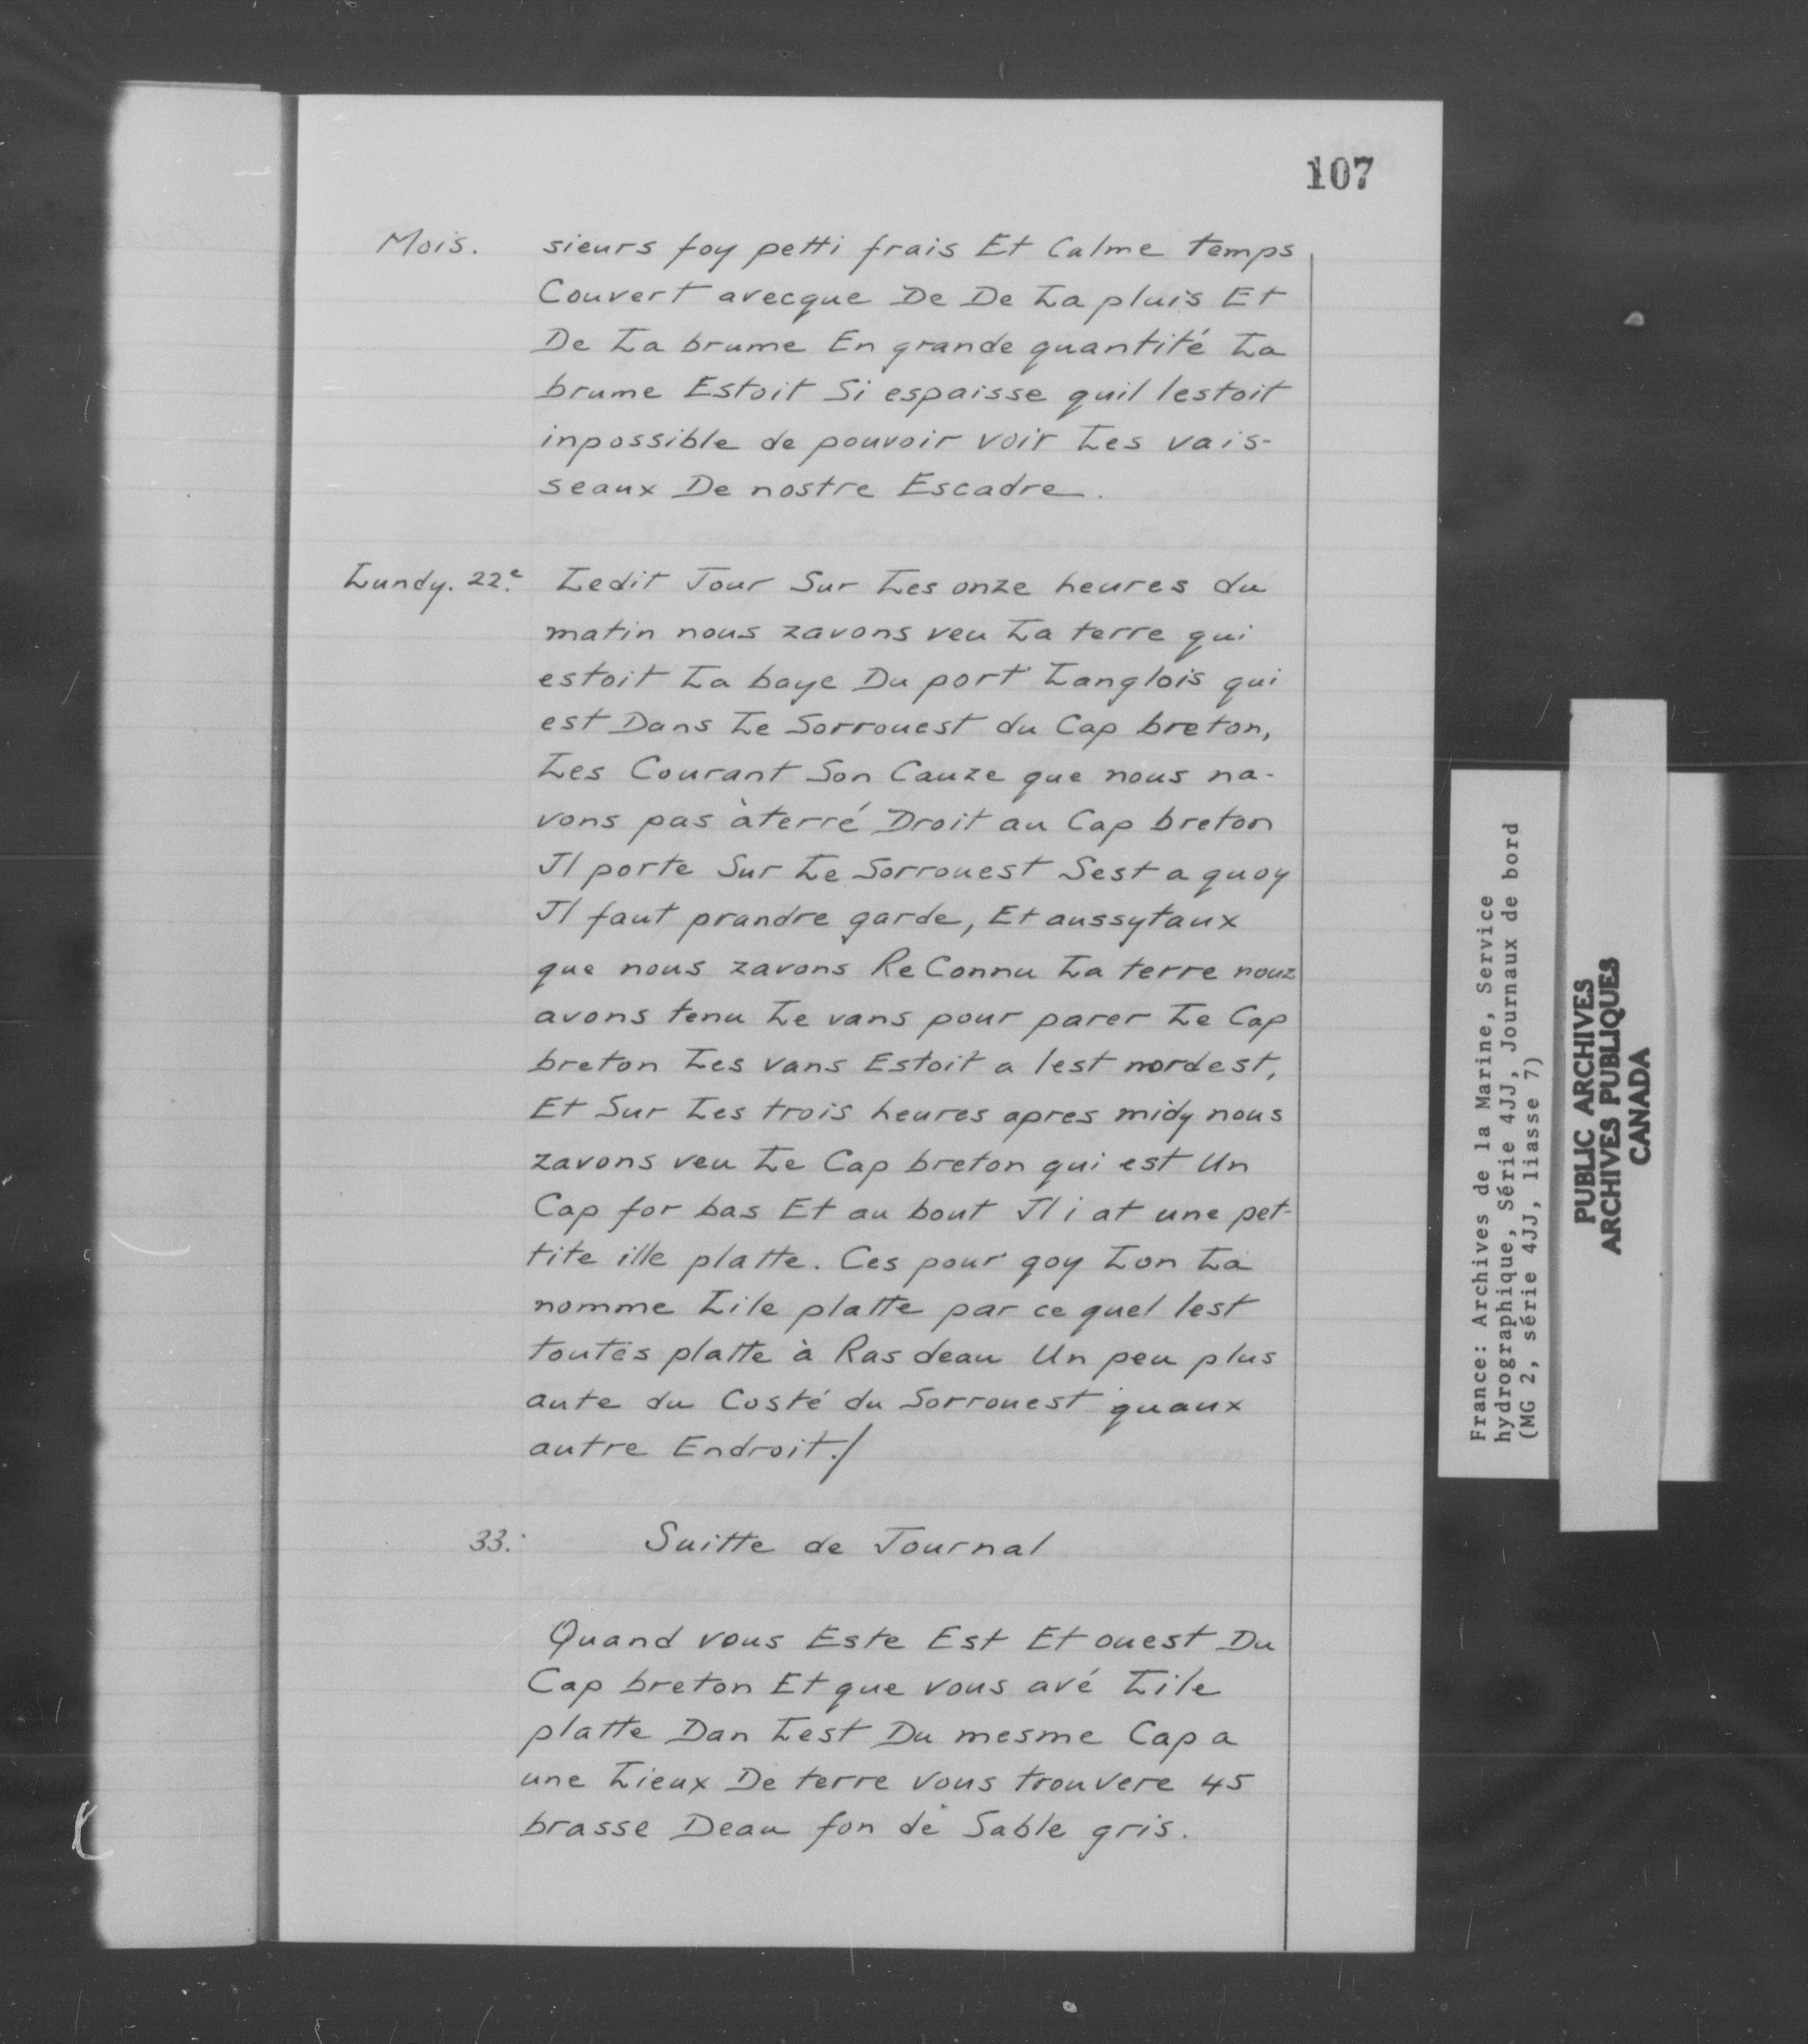 107
Mois. sieurs foy petti frais Et Calme temps
Couvert avecque De De La pluis Et
De La brume En grande quantité La
brume Estoit Si espaisse quil lestoit
inpossible de pouvoir voir Les vais-
seaux De nostre Escadre.
Lundy. 22.e Ledit Jour Sur Les onze heures du
matin nous zavons veu La terre qui
estoit La baye Du port Langlois qui
est Dans Le Sorrouest du Cap breton,
Les Courant Son Cauze que nous na-
vons pas àterré Droit au Cap breton
Jl porte Sur Le Sorrouest Sest a quoy
Jl faut prandre garde, Et aussytaux
que nous zavons ReConnu La terre nouz
avons tenu Le vans pour parer Le Cap
breton Les vans Estoit a lest nordest,
Et Sur Les trois heures apres midy nous
zavons veu Le Cap breton qui est Un
Cap for bas Et au bout Jl i at une pet-
tite ille platte. Ces pour qoy Lon La
nomme Lile platte par ce quel lest
toutes platte à Ras deau Un peu plus
aute du Costé du Sorrouest quaux
autre Endroit./
33. Suitte de Journal
Quand vous Este Est Et ouest Du
Cap breton Et que vous avé Lile
platte Dan Lest Du mesme Cap a
une Lieux De terre vous trouvere 45
brasse Deau fon de Sable gris.
France: Archives de la Marine, Service
hydrographique, Série 4JJ, Journaux de bord
(MG 2, série 4JJ, liasse 7)
PUBLIC ARCHIVES
ARCHIVES PUBLIQUES
CANADA